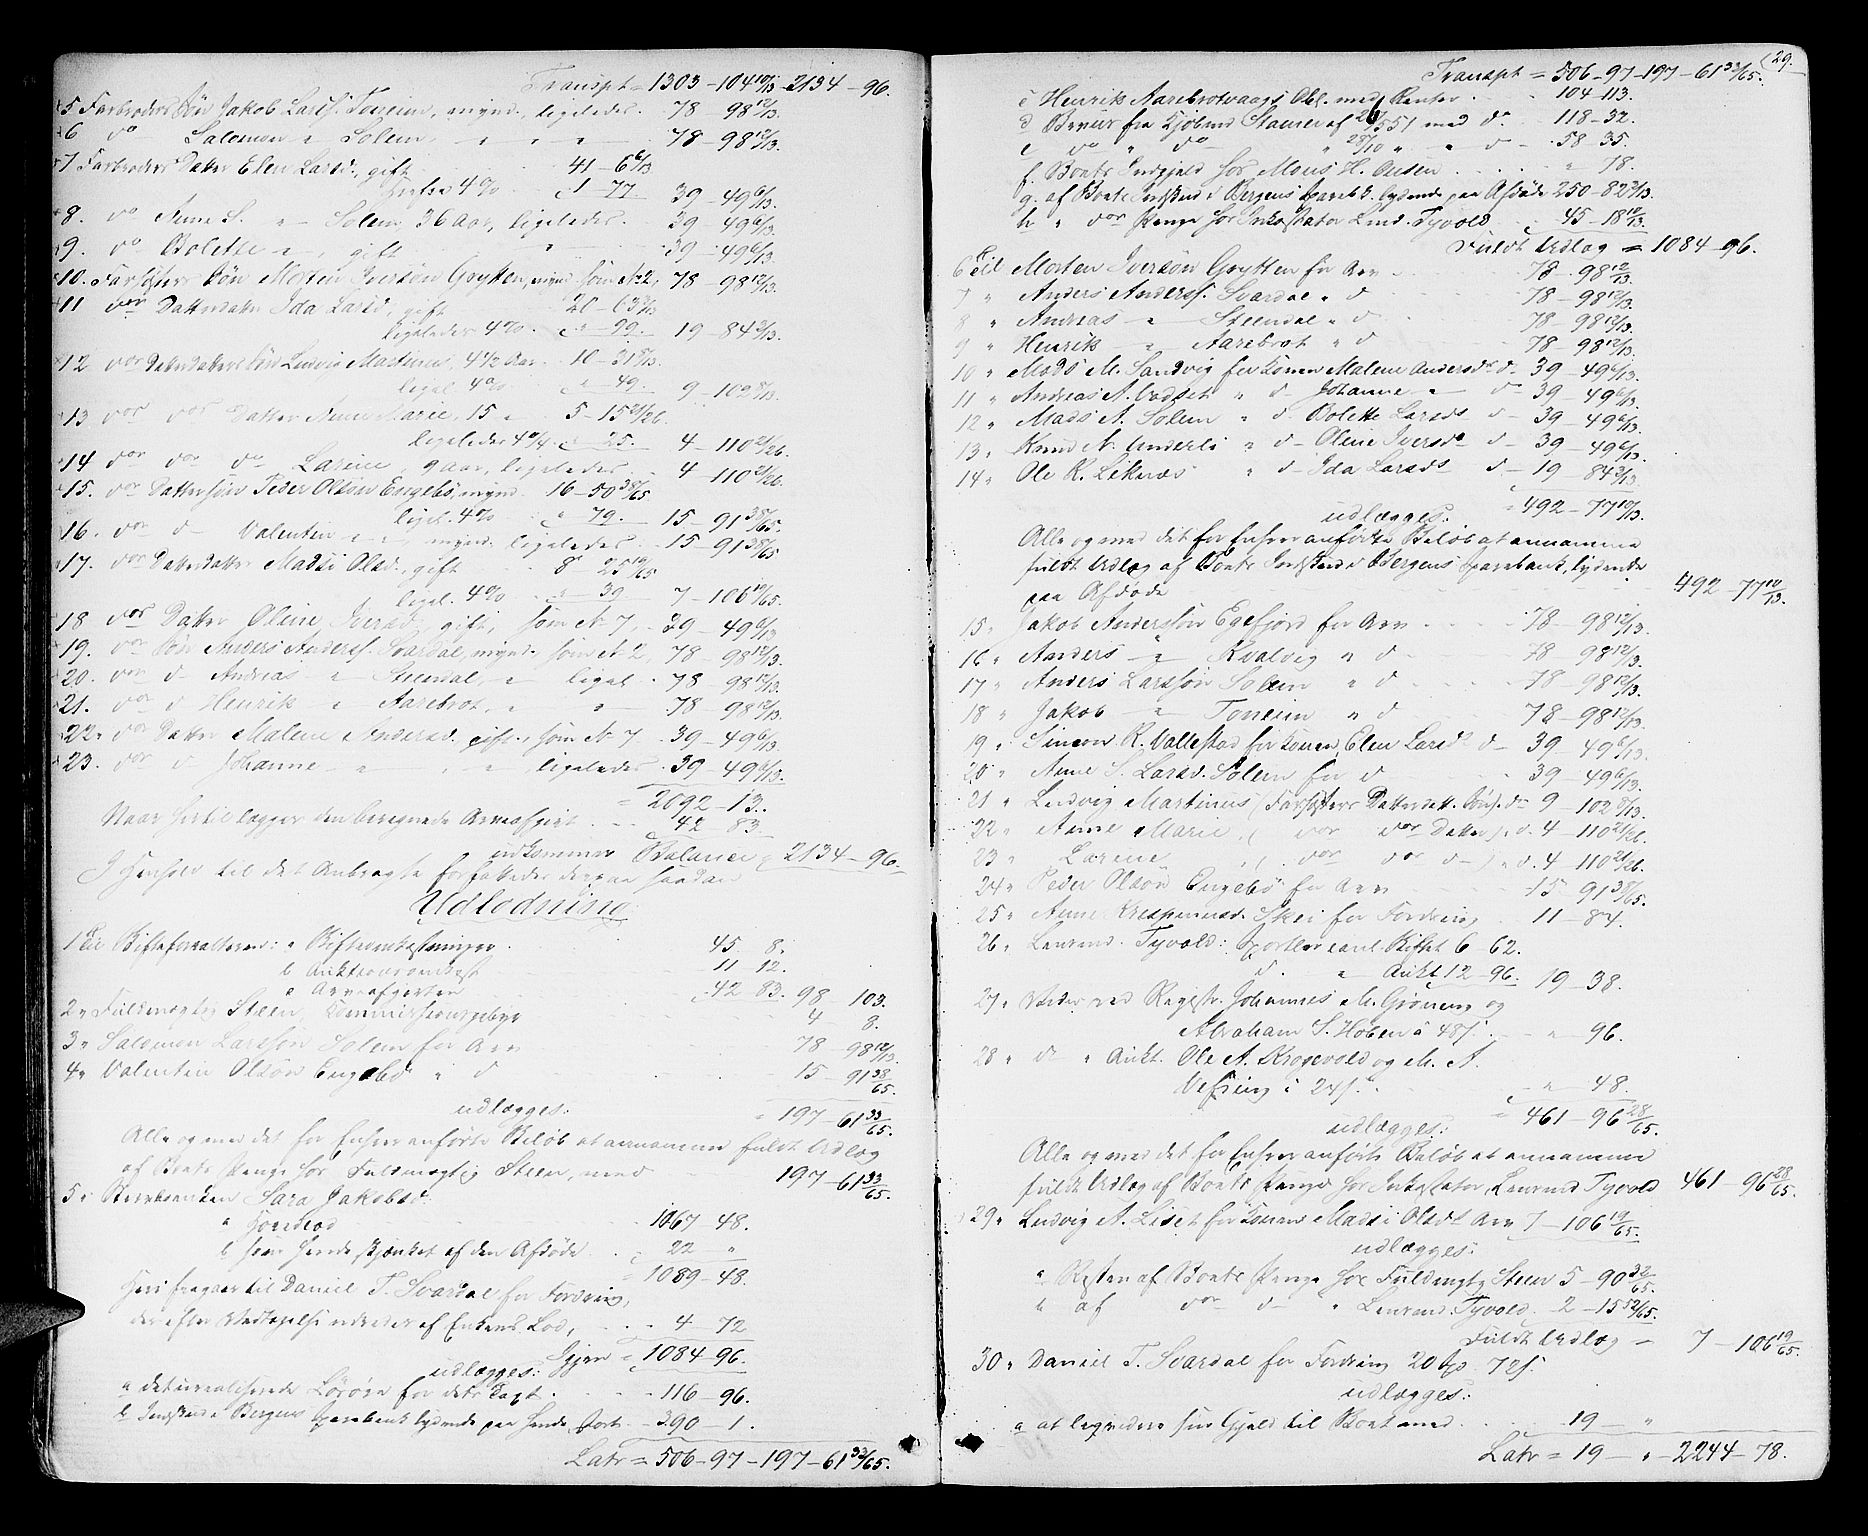 Transpt = 1303 - 104 10/13 - 2134 - 96.
5 Farbroders Søn Jakob Larss. Toneim, mynd. ligeledes. 78 - 98 12/13.
6 do Salomon " Solem " " " 78 - 98 12/13.
7 Farbroders Datter Elen Larsd., gift 41 - 6 6/13
4% 1 - 77. 39 - 49 6/13.
8. do Anne S. " Solem, 36 Aar, ligeledes. 39 - 49 6/13.
9. do Bolette " , gift " 39 - 49 6/13.
10. Farsøsters Søn Morten Iversøn Grytten, mynd. som No 2, 78 - 98 12/13.
11 dos Datterdatter Ida Larsd., gift 20 - 63 3/13
ligeledes 4% " - 99. 19 - 84 3/13.
12 dos Datterdatters Søn Ludvig Martinus, 4 1/2 Aar 10 - 31 8/13.
ligel. 4% " - 49. 9 - 102 8/13.
13 dos dos Datter Anne Marie, 15 " 5 - 15 21/26.
ligeledes 4% " 25. 4 - 110 21/26.
14 dos dos do Larine, 9 aar, ligeledes. 4 - 110 21/26.
15. dos Dattersøn Peder Olsøn Engebø, mynd. 16 - 50 38/65
ligel. 4% " 79. 15 - 91 38/65.
16. dos d Valentin " " mynd. ligeledes 15 - 91 38/65
17. dos Datterdatter Madsi Olsd., gift 8 - 25 19/65
ligel. 4% " 39. 7 - 106 19/65.
18 dos Datter Oline Iversd., gift, som No 7, 39 - 49 6/13
19. dos Søn Anders Anderss. Svardal, mynd. som No 2, 78 - 98 12/13.
20. dos d Andreas " Steendal, " ligel. 78 - 98 12/13.
21. dos d Henrik " Aarebrot, " " 78 - 98 12/13.
22. dos Datter Malene Andersd. gift, som No 7 39 - 49 6/13.
23. dos d Johanne " " " , ligeledes 39 - 49 6/13.
= 2092 - 13.
Naar hertil lægges den beregnede Arveafgivt 42 83.
udkommer Balance = 2134 - 96.
I Henhold til det Anbragte forfattedes derpaa saadan
Udlodning:
1 Til Skifteforvalteren: a Skifteomkostninger 45 8.
b Auktionsomkost 11 12.
c Arveafgivten 42 83. 98 - 103.
2 " Fuldmægtig Steen, Kommissionsgebyr 4 8.
3 " Salomon Larssøn Solem for Arv 78 - 98 12/13.
4 " Valentin Olsøn Engebø " d 15 - 91 38/65.
udlægges: = 197 - 61 33/65.
Alle og med det for Enhver anførte Beløb at annamme fuldt Udlæg
af Boets Penge hos Fuldmægtig Steen, med 197 - 61 33/65.
5 " Sterkenken Sara Jakobsd.
a Hovedlod 1067 - 48.
b som hende skjænket af den Afdøde 22 "
= 1089 - 48.
Heri fragaar til Daniel T. Svardal for Fordring,
der efter Vedtagelse udredes af Enkens Lod, 4 - 72
Igjen = 1084 - 96.
udlægges:
a det urealiserede Løsøre for dets Taxt. 116 - 96.
b Indskud i Bergens Sparebank lydende paa hende, fort. 390 - 1.
Latr = 506 - 97 - 197 - 61 33/65.
(29.
Transpt = 506 - 97 - 197 - 61 33/65.
c Henrik Aarebrotvaags Obl. med Renter 104 - 113.
d Beviis fra Kjøbmd Staurer af 51 med do 118 - 32.
e do " do " 28/10 " " d 58 35.
f Boets Indgjeld hos Mons H. Ausen " 78.
g. af Boets Indskud i Bergens Spareb. lydende paa Afdøde 250 - 82 2/13.
h " dos Penge hos Inkassator Lund. Tyvold 45 - 18 11/13.
Fuldt Udlæg = 1084 - 96.
6 Til Morten Iversøn Grytten for Arv 78 - 98 12/13.
7 " Anders Anderss. Svardal " d 78 - 98 12/13.
8 " Andreas " Steendal " d 78 - 98 12/13.
9 " Henrik " Aarebrot " d 78 98 12/13.
10 " Mads M. Sandvig for Konen Malene Andersdr d 39 - 49 6/13.
11 " Andreas A. Vadset " d Johanne " do 39 - 49 6/13.
12 " Mads A. Solem " d Bolette Larsdr d 39 - 49 6/13.
13 " Knud N. Underli " d Oline Iversdr d 39 - 49 6/13.
14 " Ole R. Liknæs " d Ida Larsdr d 19 - 84 3/13.
udlægges: = 492 - 77 12/13.
Alle og med det for Enhver anførte Beløb at annamme
fuldt Udlæg af Boets Indskud i Bergens Sparebank, lydende
paa Afdøde 492 - 77 12/13.
15 " Jakob Anderssøn Egefjord for Arv 78 - 98 12/13.
16 " Anders " Kvalvig " d 78 98 12/13.
17 " Anders Larssøn Solem " d 78 - 98 12/13.
18 " Jakob " Toneim " d 78 - 98 12/13.
19 " Simeon R. Vallestad for Konen Elen Larsdr d 39 - 49 6/13.
20 " Anne S. Larsd. Solem for d 39 - 49 6/13.
21 " Ludvig Martinus (Farsøsters Datterdatt. Søn) do 9 - 102 8/13.
22 " Anne Marie, ( dos dos Datter) d. 4 - 110 21/26.
23 " Larine " ( dos dos d ) " d. 4 - 110 21/26.
24 " Peder Olsøn Engebø for Arv 15 - 91 38/65.
25 " Anne Krespinusd. Skei for Fordring 11 - 84.
26 " Lensmd. Tyvold: Sportler anl. Skiftet 6 - 62.
d. " Aukt. 12 - 96. 19 - 38.
27 " Vidner ved Registr. Johannes M. Grønning og
Abraham S. Høben à 48 s. " 96.
28 " d " Aukt. Ole A. Krogevold og M. A.
Vefring à 24 s. " 48.
udlægges: = 461 - 96 28/65.
Alle og med det for Enhver anførte Beløb at annamme
fuldt Udlæg af Boets Penge hos Inkassator, Lensmd Tyvold 461 - 96 28/65.
29 " Ludvig A. Liset for Konen Madsi Olsdr Arv 7 - 106 19/65.
udlægges:
a Resten af Boets Penge hos Fuldmgtg Steen 5 - 90 32/65.
b af dos d " Lensmd. Tyvold 2 - 15 52/65.
Fuldt Udlæg = 7 - 106 19/65.
30 " Daniel T. Svardal for Fordring 20 Sp. 72 s.
udlægges:
a at liqvidere sin Gjæld til Boet med 19 - "
Latr = 19 - " - 2244 - 78.